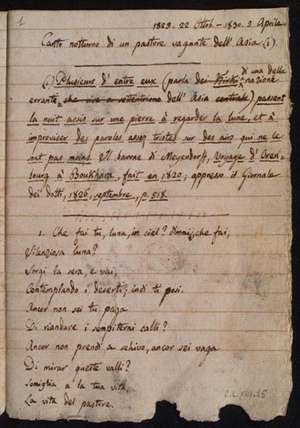 1
1829. 22 Ottob. - 1830. 9 Aprile.
Canto notturno di un pastore vagante dell'Asia (1).
(1) Plusieurs d'entre eux (parla dei di una delle nazione
errante, che vive a settentrione dell'Asia centrale) passent
la nuit assis sur une pierre à regarder la lune, et à
improviser des paroles assez tristes sur des airs qui ne le
sont pas moins. Il barone di Meyendorff, Voyage d'Oren-
bourg à Boukhara, fait en 1820, appresso il Giornale
dei dotti, 1826, septembre, p. 518.
1. Che fai tu, luna, in ciel? dimmi, che fai,
Silenziosa luna?
Sorgi la sera, e vai,
Contemplando i deserti; indi ti posi.
Ancor non sei tu paga
Di riandare i sempiterni calli?
Ancor non prendi a schivo, ancor sei vaga
Di mirar queste valli?
Somiglia a la tua vita
La vita del pastore.